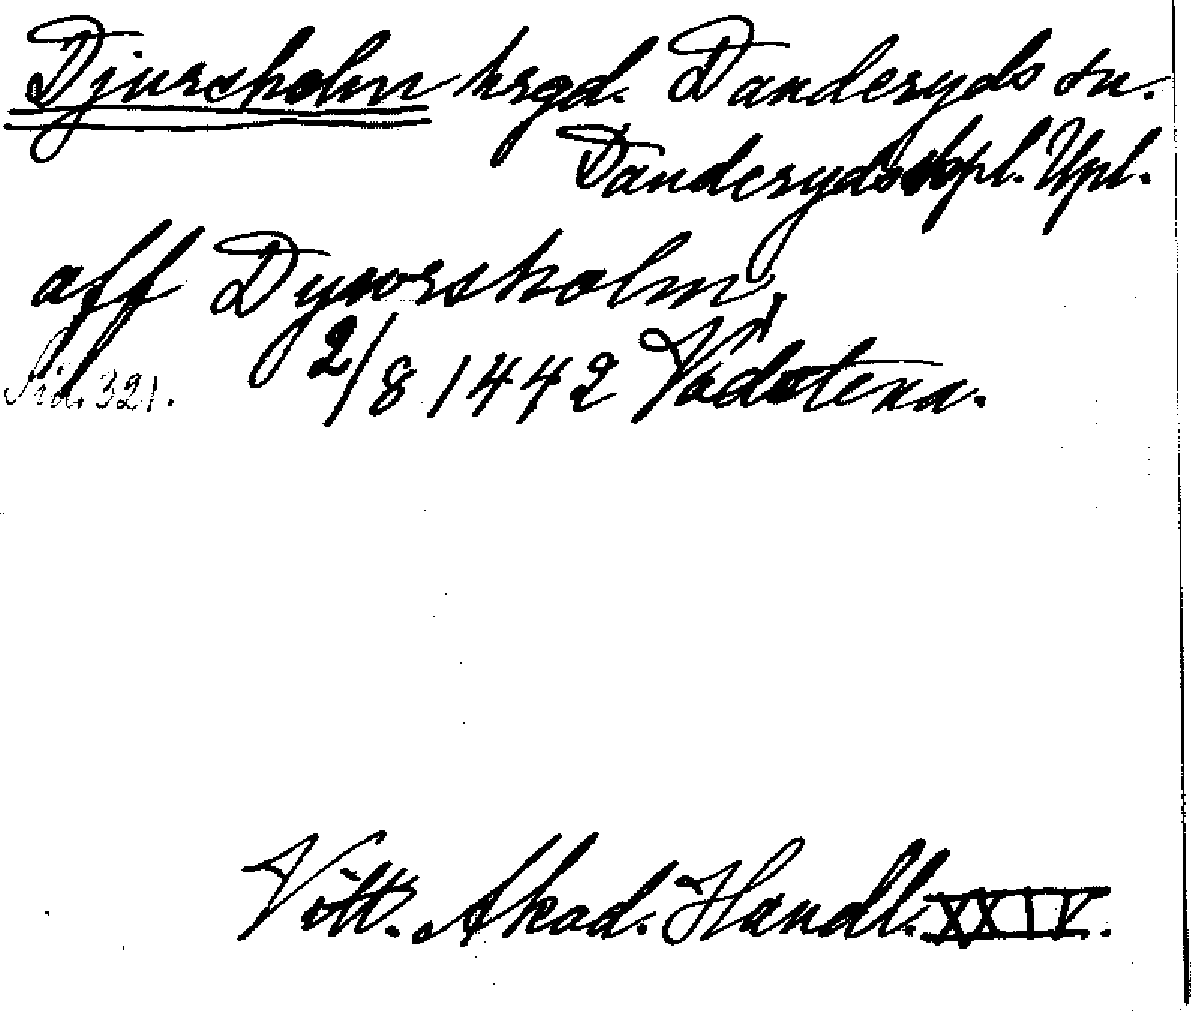 Djursholm hrgd. Danderyds sn.
Danderyds skpl. Upl.
aff Dyworsholm,
Sid. 321. 2/8 1442 Vadstena.
Vitt. Akad. Handl. XXIV.